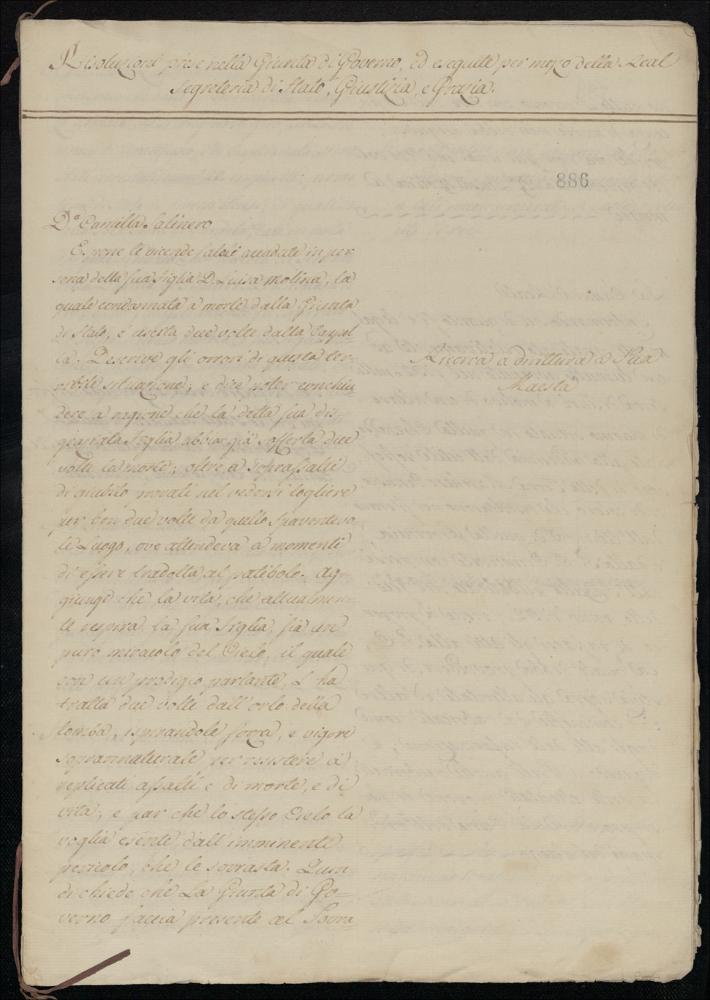 Risoluzioni prese nella Giunta di Governo, ed eseguite per mezo della Real
Segreteria di Stato, Giustizia, e Grazia.
886
D.ª Camilla Salinero
Espone le vicende accadute in per
sona della sua figlia D. Luisa Molina, la
quale condannata à morte dalla Giunta
di Stato, è uscita due volte dalla Cappel
la. Descrive gli orrori di questa ter
ribile situazione, e dice poter conchiu
dere à ragione che la della sua dis
graziata figlia abbia già sofferta due
volte la morte, oltre à soprassalti
di giubilo nel vedersi togliere
per ben due volte da quello spaventevo
le Luogo, ove attendeva à momenti
di essere tradotta al patibolo. Ag
giunge che la vita, che attualmen
te respira la sua figlia, sia un
puro miracolo del Cielo, il quale
con un prodigio parlante, l'ha
tratta due volte dall'orlo della
tomba, ispirandole forza, e vigore
soprannaturale per resistere à
replicati assalti e di morte, e di
vita, e par che lo stesso Cielo la
voglia esente dall'imminente
pericolo, che le sovrasta. Quin
di chiede che La Giunta di Go
verno faccia presente al Sovra
Ricorra a drittura à Sua
Maestà